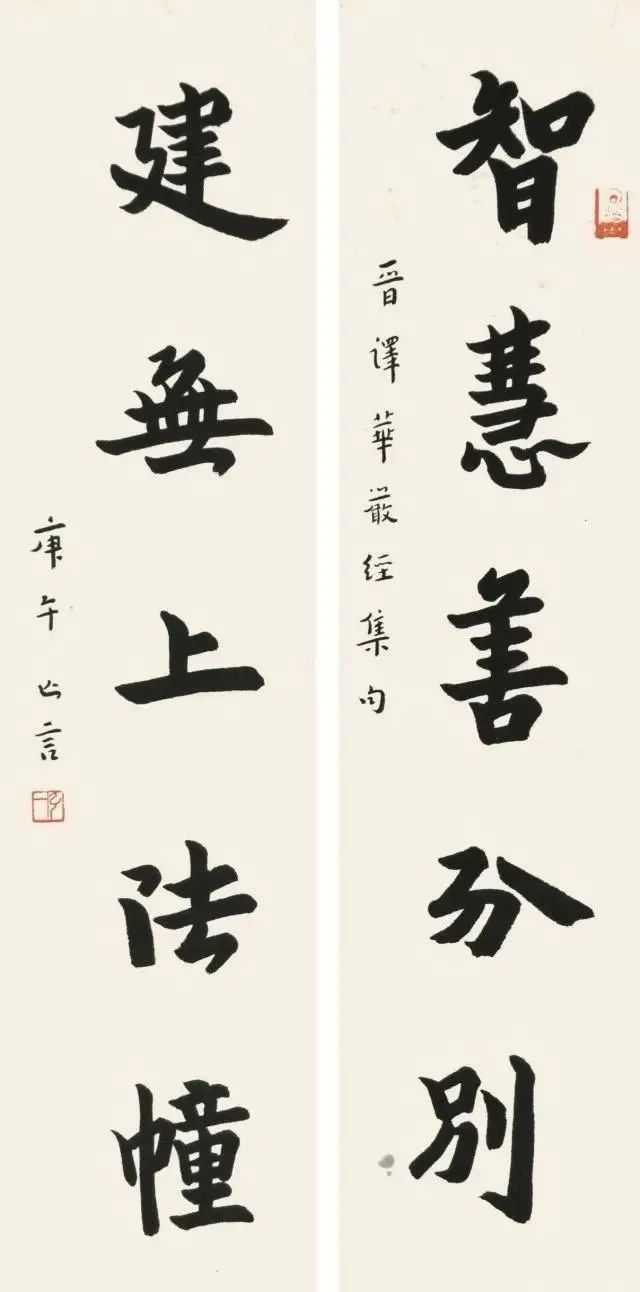 智慧善分別
晋譯華嚴經集句
建無上法幢
庚午 亡言